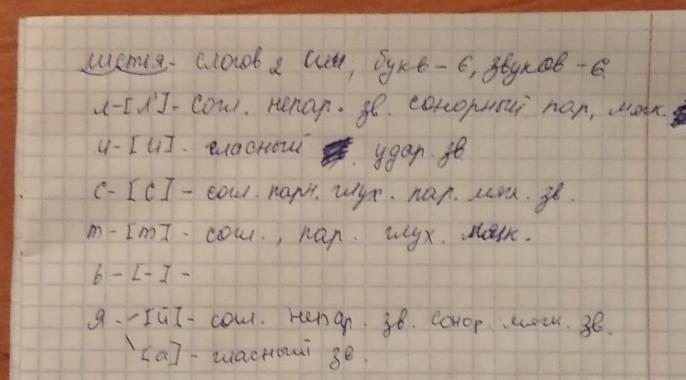 листья - слогов 2 слн, букв - 6, звуков - 6
л - [л'] - согл. непар. зв. сонорный пар, мягк.
и - [и] - гласный удар. зв
с - [с] - согл. парн. глух. пар. мягк. зв.
т - [т] - согл., пар. глух. мягк.
ь - [-] -
я - [й] - согл. непар. зв. сонор. мягк. зв.
[а] - гласный зв.